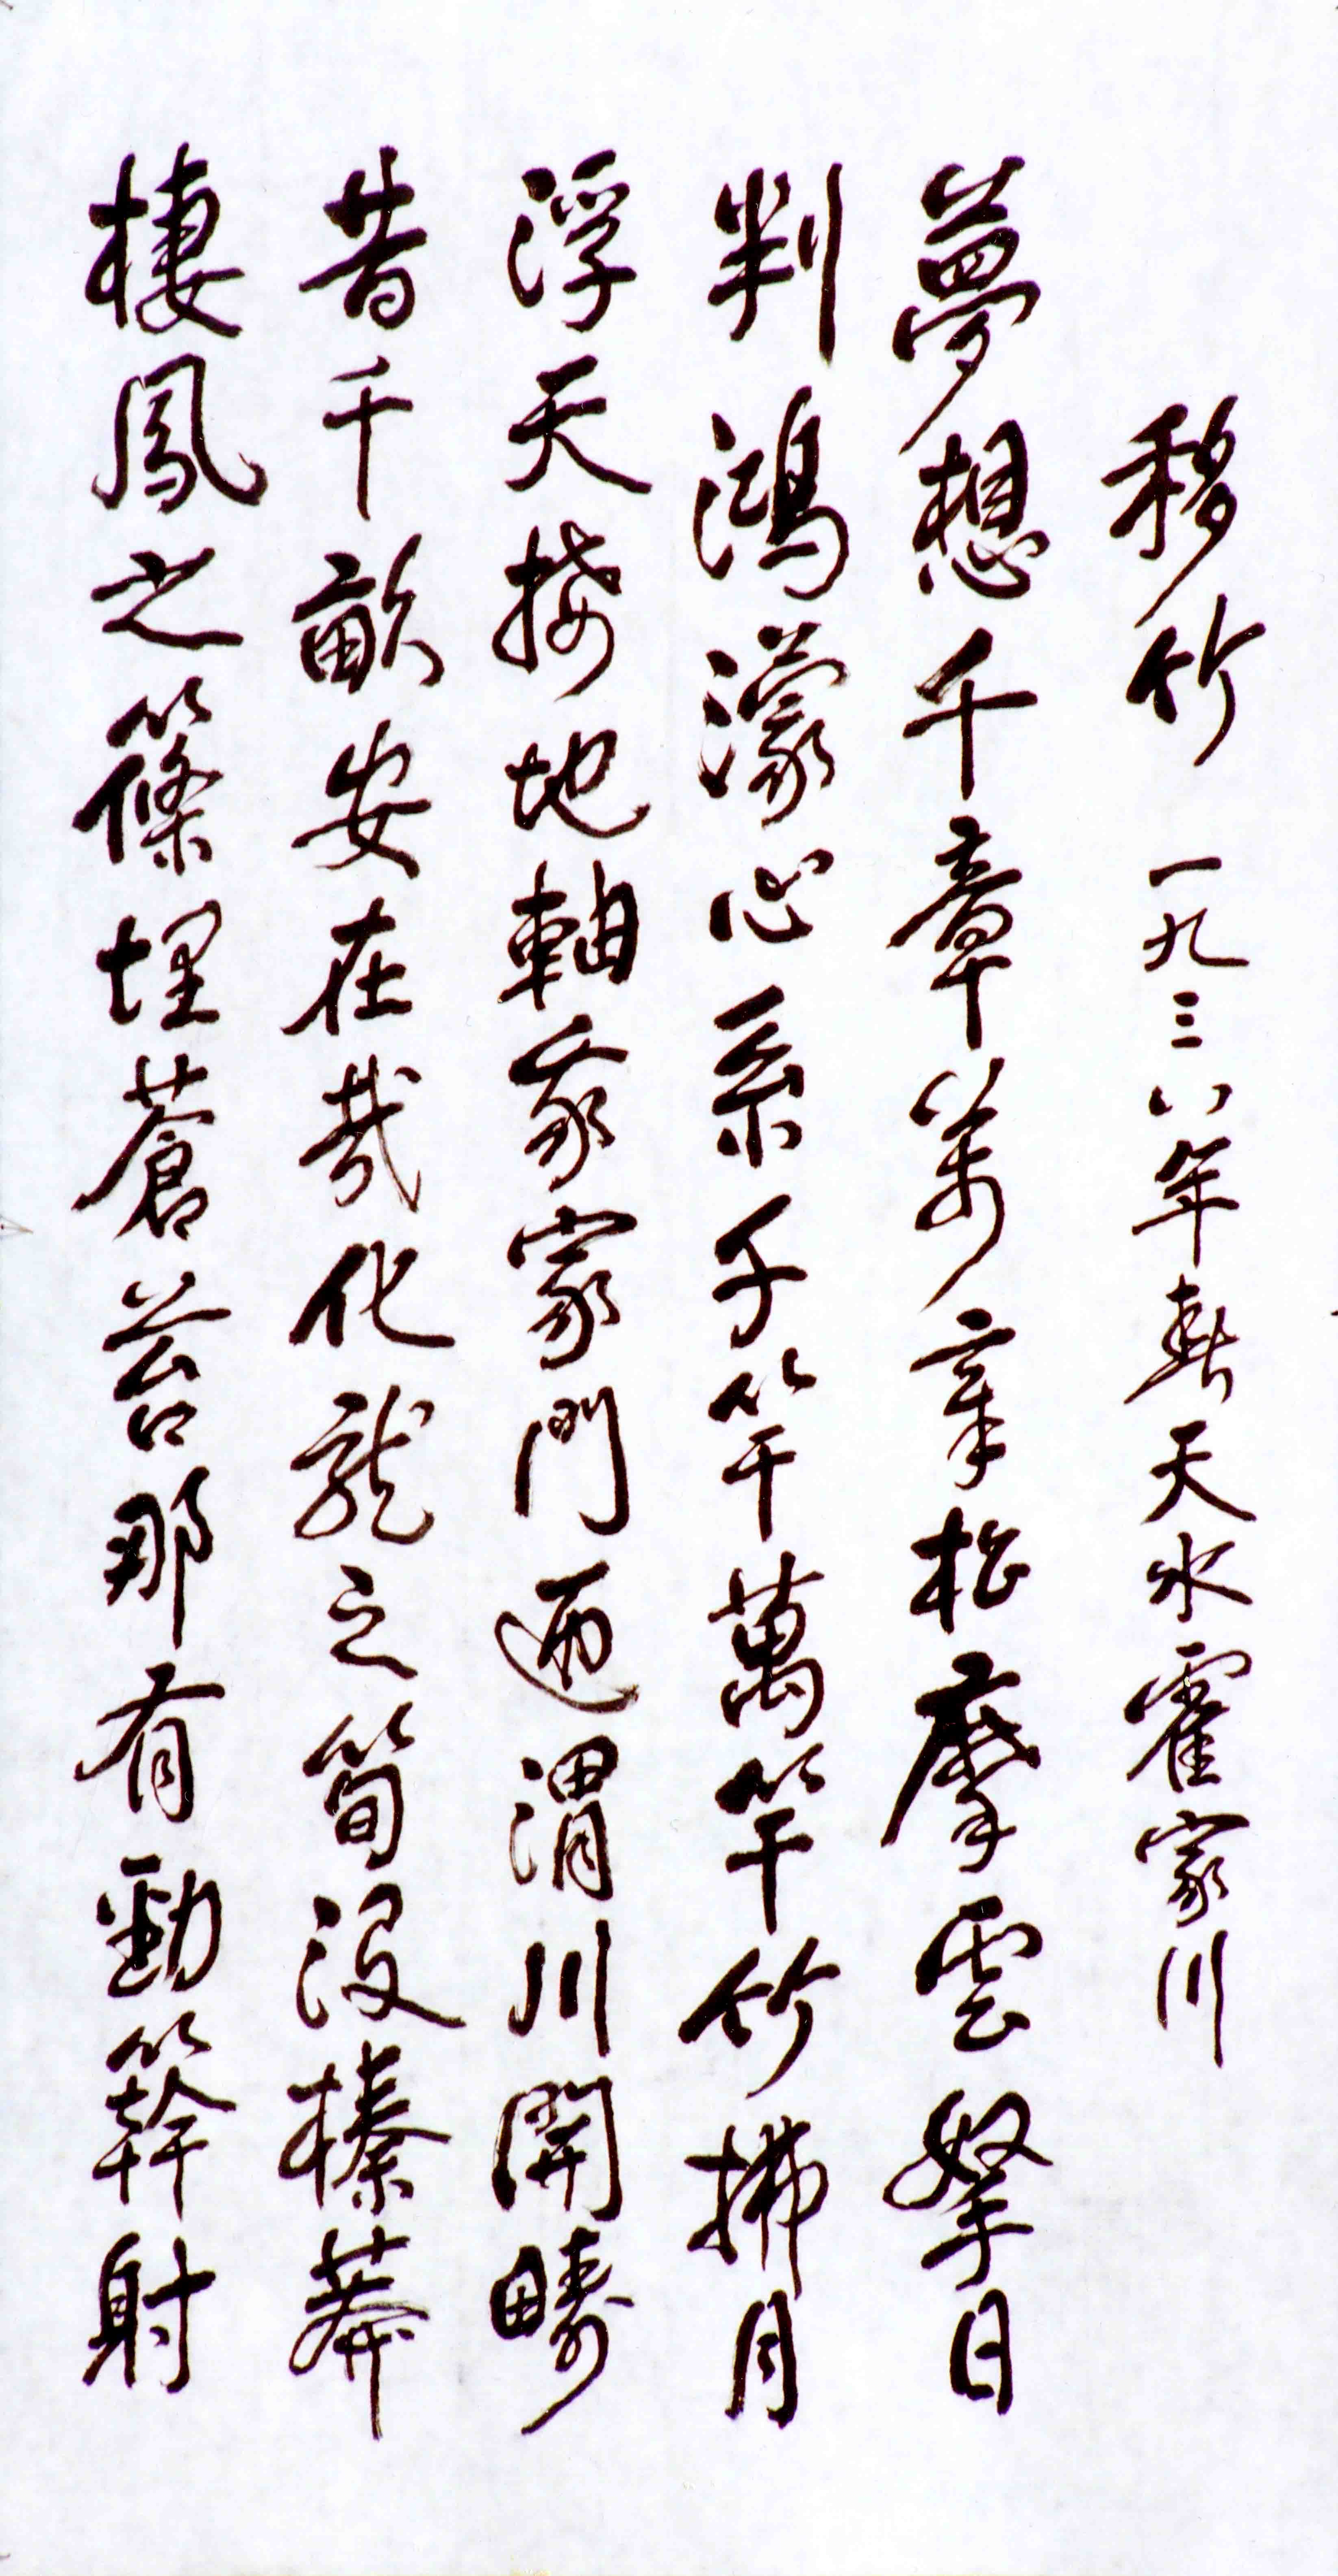 移竹 一九三八年春天水霍家川
夢想千章萬章松摩雲拏日
判鴻濛心系千竿萬竿竹拂月
浮天接地軸我家門迤渭川開疇
昔千畝安在哉化龍之筍沒榛莽
棲鳳之篠埋蒼苔那有勁簳射